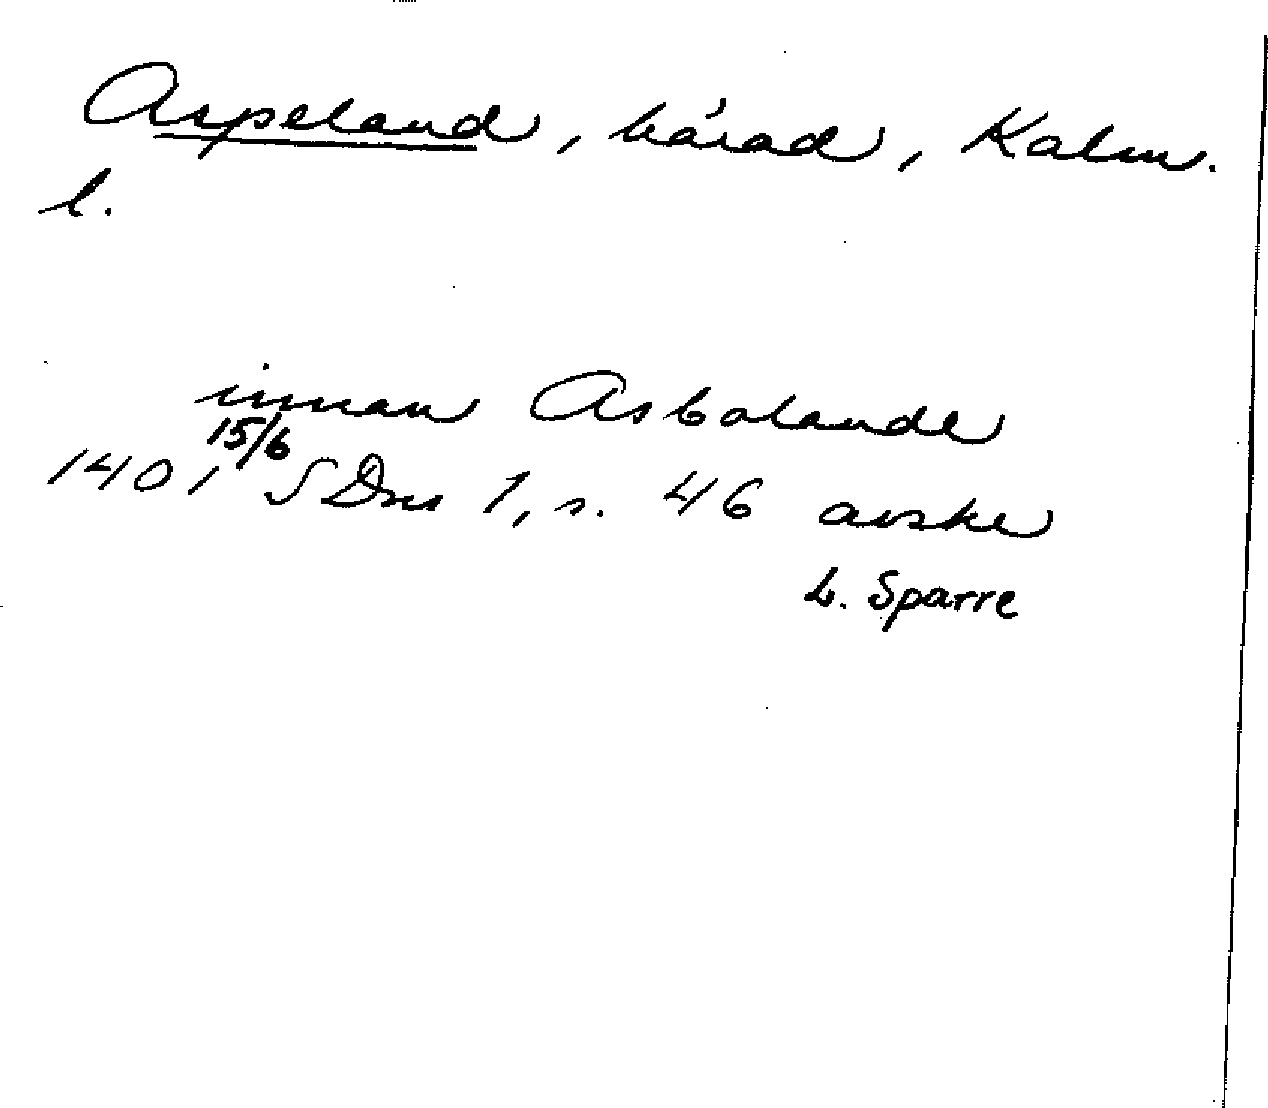 Aspeland, härad, Kalm.
l.
innan Asbolande
1401 15/6 SDns 1, s. 46 avskr
L. Sparre